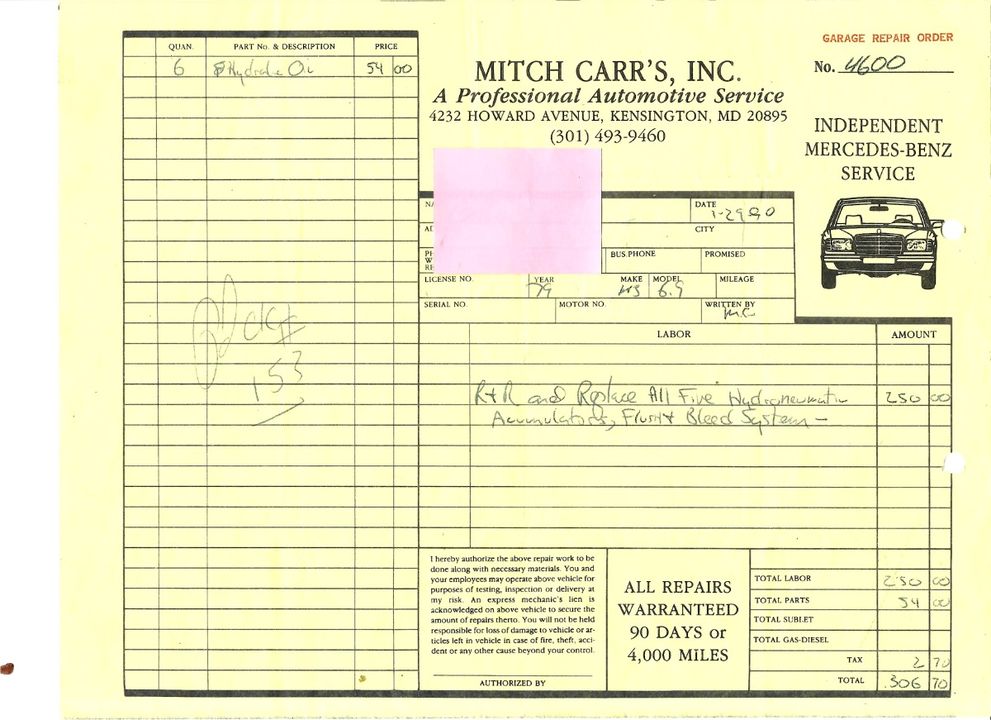 GARAGE REPAIR ORDER
No. 4600
QUAN. PART No. & DESCRIPTION PRICE
6 Hydralic Oil 54 00
MITCH CARR'S, INC.
A Professional Automotive Service
4232 HOWARD AVENUE, KENSINGTON, MD 20895
(301) 493-9460
INDEPENDENT
MERCEDES-BENZ
SERVICE
DATE
CITY
BUS.PHONE PROMISED
LICENSE NO. YEAR MAKE MODEL MILEAGE
79 6.9
SERIAL NO. MOTOR NO. WRITTEN BY
M.C.
LABOR AMOUNT
CK#
153
R+R and Replace All Five Hydroneumatic 250 00
Acumulators, Flush & Bleed System –
I hereby authorize the above repair work to be
done along with necessary materials. You and
your employees may operate above vehicle for
purposes of testing, inspection or delivery at
my risk. An express mechanic's lien is
acknowledged on above vehicle to secure the
amount of repairs therto. You will not be held
responsible for loss of damage to vehicle or ar-
ticles left in vehicle in case of fire, theft, acci-
dent or any other cause beyond your control.
AUTHORIZED BY
ALL REPAIRS
WARRANTEED
90 DAYS or
4,000 MILES
TOTAL LABOR 250 00
TOTAL PARTS 54 00
TOTAL SUBLET
TOTAL GAS-DIESEL
TAX 2 70
TOTAL 306 70